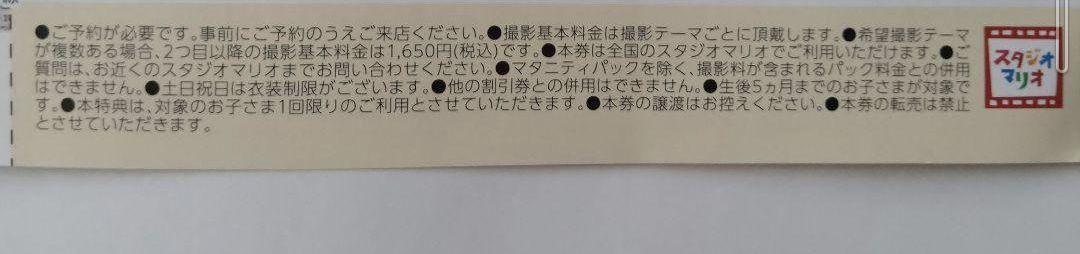 ●ご予約が必要です。事前にご予約のうえご来店ください。●撮影基本料金は撮影テーマごとに頂戴します。●希望撮影テーマ
が複数ある場合、2つ目以降の撮影基本料金は1,650円(税込)です。●本券は全国のスタジオマリオでご利用いただけます。●ご
質問は、お近くのスタジオマリオまでお問い合わせください。●マタニティパックを除く、撮影料が含まれるパック料金との併用
はできません。●土日祝日は衣装制限がございます。●他の割引券との併用はできません。●生後5ヵ月までのお子さまが対象で
す。●本特典は、対象のお子さま1回限りのご利用とさせていただきます。●本券の譲渡はお控えください。●本券の転売は禁止
とさせていただきます。
スタジオ
マリオ